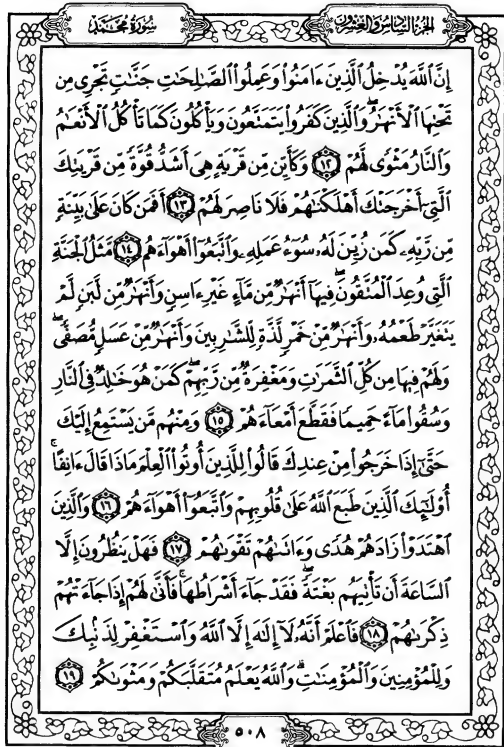 الجزء السادس والعشرون
سورة محمد
إِنَّ ٱللَّهَ يُدْخِلُ ٱلَّذِينَ ءَامَنُوا۟ وَعَمِلُوا۟ ٱلصَّٰلِحَٰتِ جَنَّٰتٍ تَجْرِى مِن
تَحْتِهَا ٱلْأَنْهَٰرُ ۖ وَٱلَّذِينَ كَفَرُوا۟ يَتَمَتَّعُونَ وَيَأْكُلُونَ كَمَا تَأْكُلُ ٱلْأَنْعَٰمُ
وَٱلنَّارُ مَثْوًى لَّهُمْ ١٢ وَكَأَيِّن مِّن قَرْيَةٍ هِىَ أَشَدُّ قُوَّةً مِّن قَرْيَتِكَ
ٱلَّتِىٓ أَخْرَجَتْكَ أَهْلَكْنَٰهُمْ فَلَا نَاصِرَ لَهُمْ ١٣ أَفَمَن كَانَ عَلَىٰ بَيِّنَةٍ
مِّن رَّبِّهِۦ كَمَن زُيِّنَ لَهُۥ سُوٓءُ عَمَلِهِۦ وَٱتَّبَعُوٓا۟ أَهْوَآءَهُم ١٤ مَّثَلُ ٱلْجَنَّةِ
ٱلَّتِى وُعِدَ ٱلْمُتَّقُونَ ۖ فِيهَآ أَنْهَٰرٌ مِّن مَّآءٍ غَيْرِ ءَاسِنٍ وَأَنْهَٰرٌ مِّن لَّبَنٍ لَّمْ
يَتَغَيَّرْ طَعْمُهُۥ وَأَنْهَٰرٌ مِّنْ خَمْرٍ لَّذَّةٍ لِّلشَّٰرِبِينَ وَأَنْهَٰرٌ مِّنْ عَسَلٍ مُّصَفًّى ۖ
وَلَهُمْ فِيهَا مِن كُلِّ ٱلثَّمَرَٰتِ وَمَغْفِرَةٌ مِّن رَّبِّهِمْ ۖ كَمَنْ هُوَ خَٰلِدٌ فِى ٱلنَّارِ
وَسُقُوا۟ مَآءً حَمِيمًا فَقَطَّعَ أَمْعَآءَهُمْ ١٥ وَمِنْهُم مَّن يَسْتَمِعُ إِلَيْكَ
حَتَّىٰٓ إِذَا خَرَجُوا۟ مِنْ عِندِكَ قَالُوا۟ لِلَّذِينَ أُوتُوا۟ ٱلْعِلْمَ مَاذَا قَالَ ءَانِفًا ۚ
أُو۟لَٰٓئِكَ ٱلَّذِينَ طَبَعَ ٱللَّهُ عَلَىٰ قُلُوبِهِمْ وَٱتَّبَعُوٓا۟ أَهْوَآءَهُمْ ١٦ وَٱلَّذِينَ
ٱهْتَدَوْا۟ زَادَهُمْ هُدًى وَءَاتَىٰهُمْ تَقْوَىٰهُمْ ١٧ فَهَلْ يَنظُرُونَ إِلَّا
ٱلسَّاعَةَ أَن تَأْتِيَهُم بَغْتَةً ۖ فَقَدْ جَآءَ أَشْرَاطُهَا ۚ فَأَنَّىٰ لَهُمْ إِذَا جَآءَتْهُمْ
ذِكْرَىٰهُمْ ١٨ فَٱعْلَمْ أَنَّهُۥ لَآ إِلَٰهَ إِلَّا ٱللَّهُ وَٱسْتَغْفِرْ لِذَنۢبِكَ
وَلِلْمُؤْمِنِينَ وَٱلْمُؤْمِنَٰتِ ۗ وَٱللَّهُ يَعْلَمُ مُتَقَلَّبَكُمْ وَمَثْوَىٰكُمْ ١٩
٥٠٨